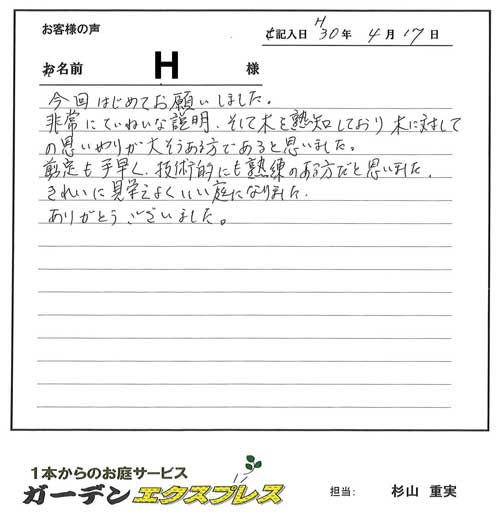 お客様の声
ご記入日 H30年 4月17日
お名前 H 様
今回はじめてお願いしました。
非常にていねいな説明、そして木を熟知しており 木に対して
の思いやりが大そうある方であると思いました。
剪定も手早く、技術的にも熟練のある方だと思いました。
きれいに見栄えよくいい庭になりました。
ありがとうございました。
1本からのお庭サービス
ガーデンエクスプレス
担当: 杉山 重実